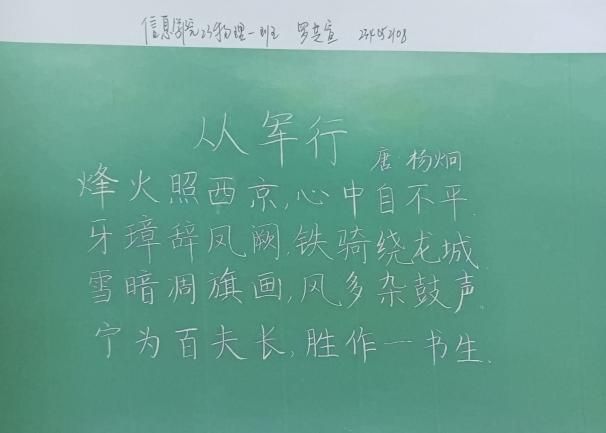 信息学院23物理一班 罗楚宣 234052108
从军行
唐·杨炯
烽火照西京,心中自不平.
牙璋辞凤阙,铁骑绕龙城.
雪暗凋旗画,风多杂鼓声.
宁为百夫长,胜作一书生.